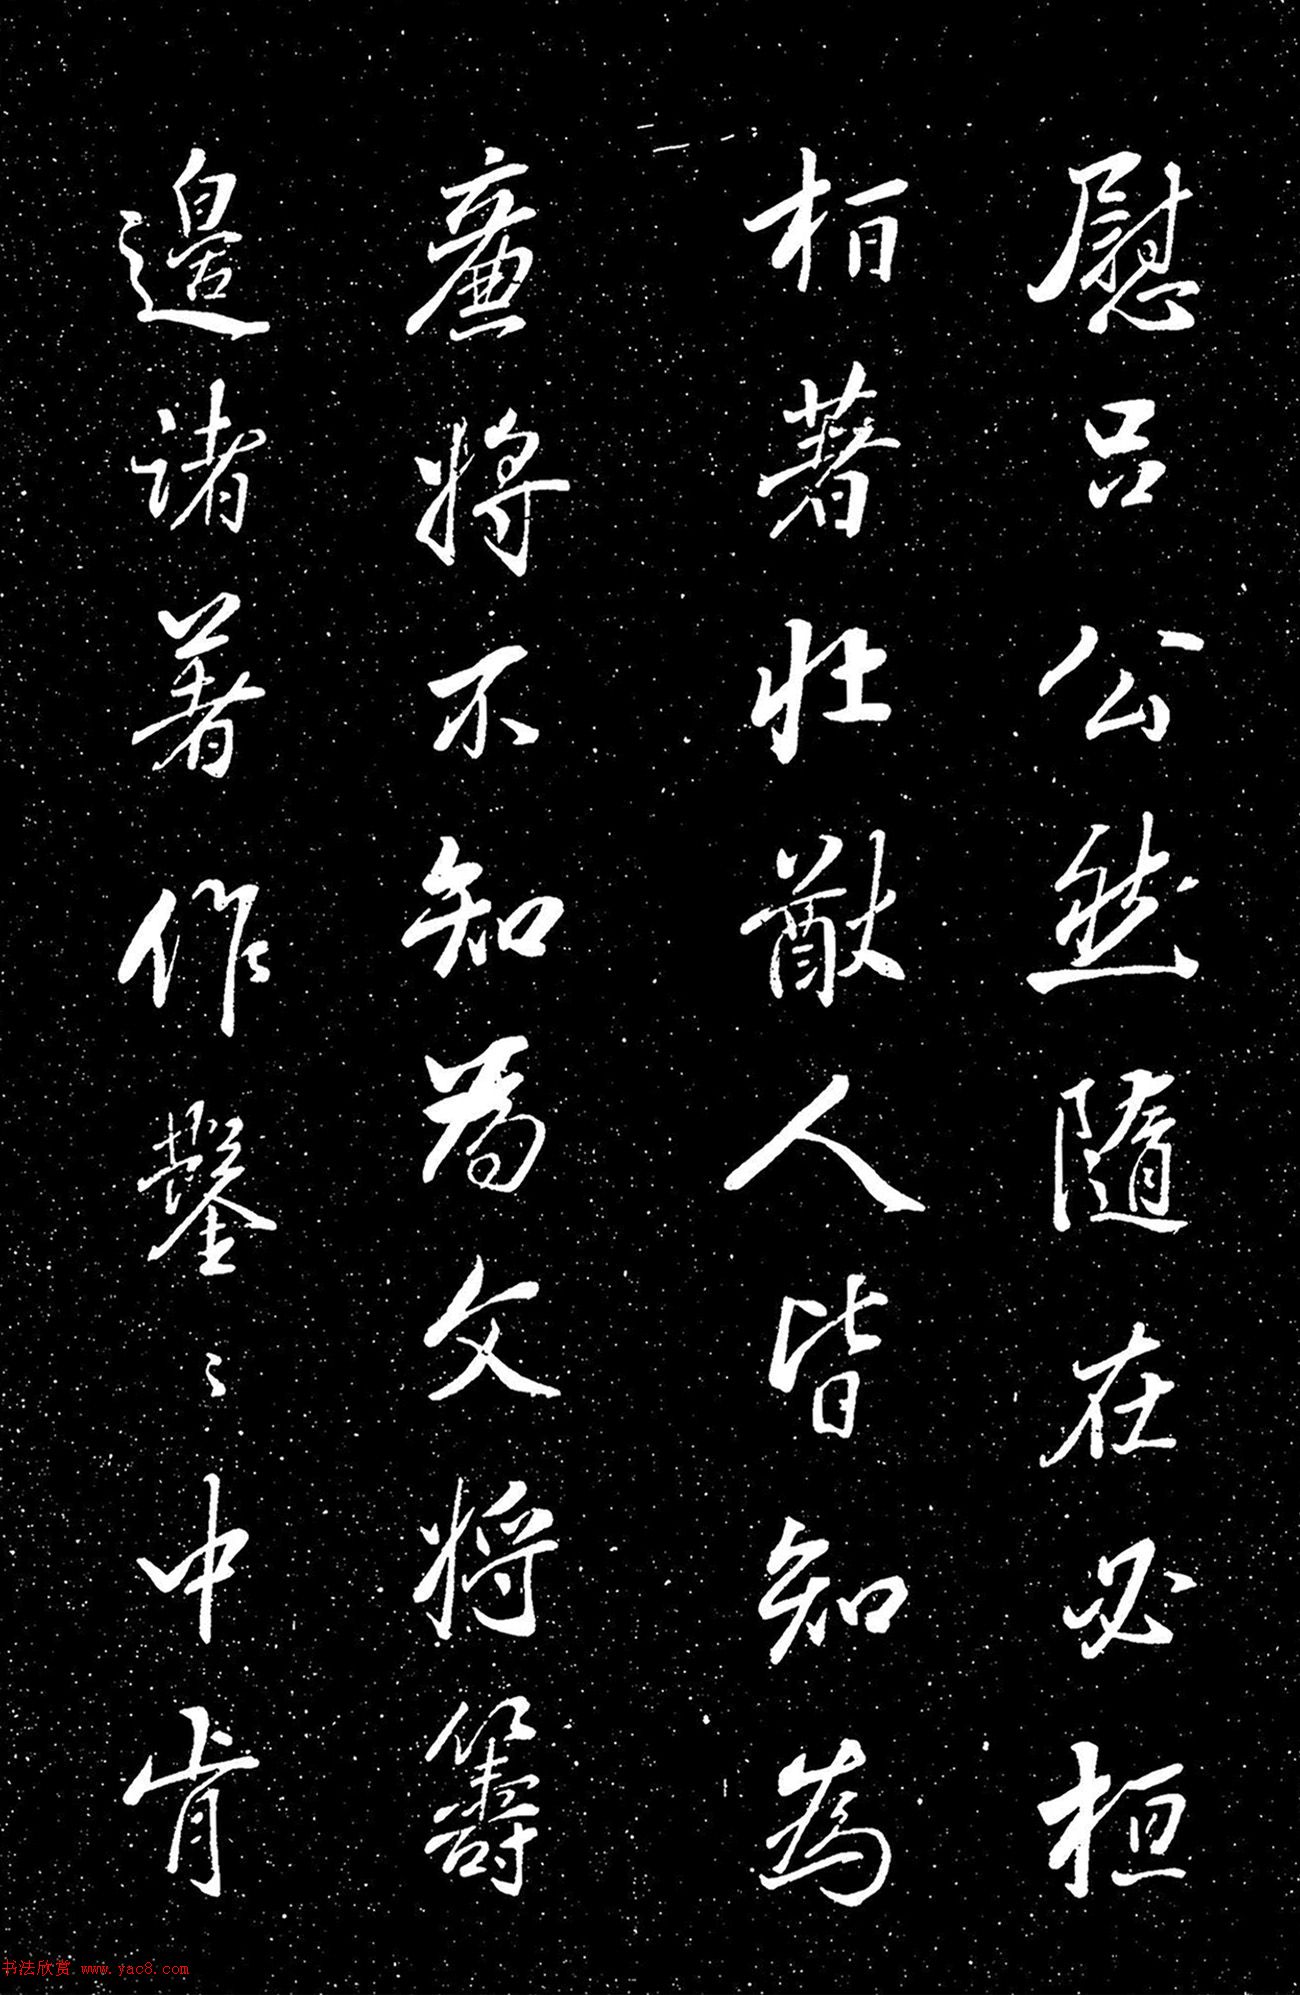 慰吕公然随在必桓
桓著壮猷人皆知為
廉将不知為文将籌
邊诸著作鑿〻中肯
书法欣赏 www.yac8.com